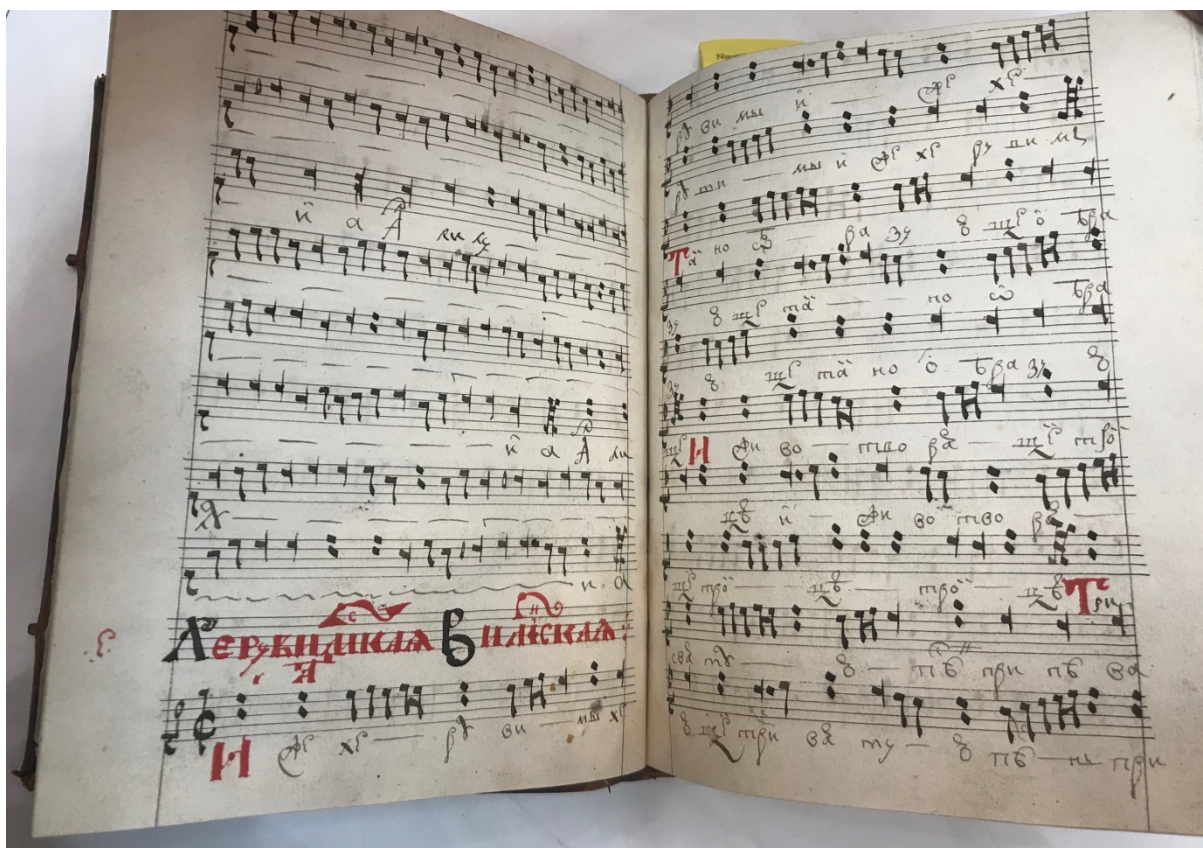 и а А ли лу
и а А ли
Х
и а
Херꙋвимская Виленская
И же хе рꙋ ви мы хе
рꙋ ви мы и же хе
мы и же хе рꙋ ви мы
Тай но ѡ ра зу ю ще о бра
зу ю ще тай но ѡ бра
зу ю ще тай но о бра зу ю
ще И жи во тво ря ще трой
цѣ и жи во тво ря
ще трой цѣ трой цѣ Три
свя ту ю пѣ при пѣ ва
ю ще три свя ту ю пѣ не при